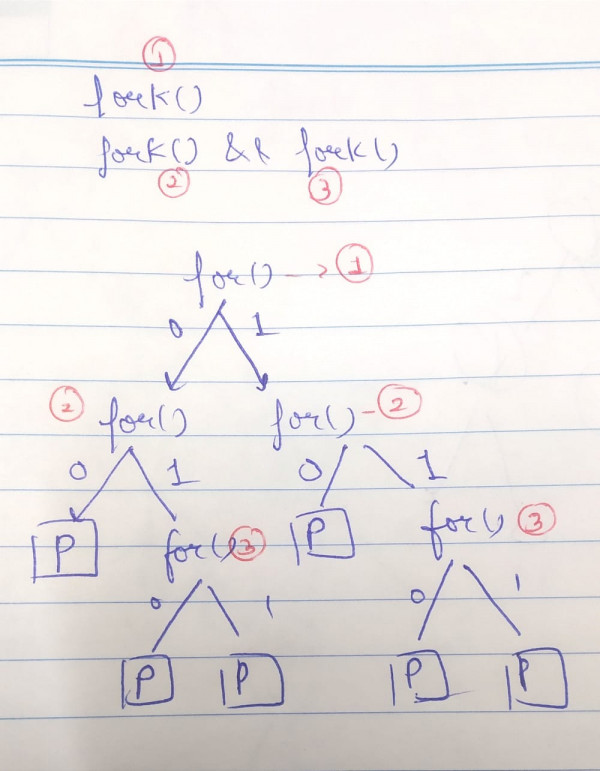 ①
fork()
fork() && fork()
② ③
for() → ①
0 1
② for() for() - ②
0 1 0 1
P for() ③ P for() ③
0 1 0 1
P P P P